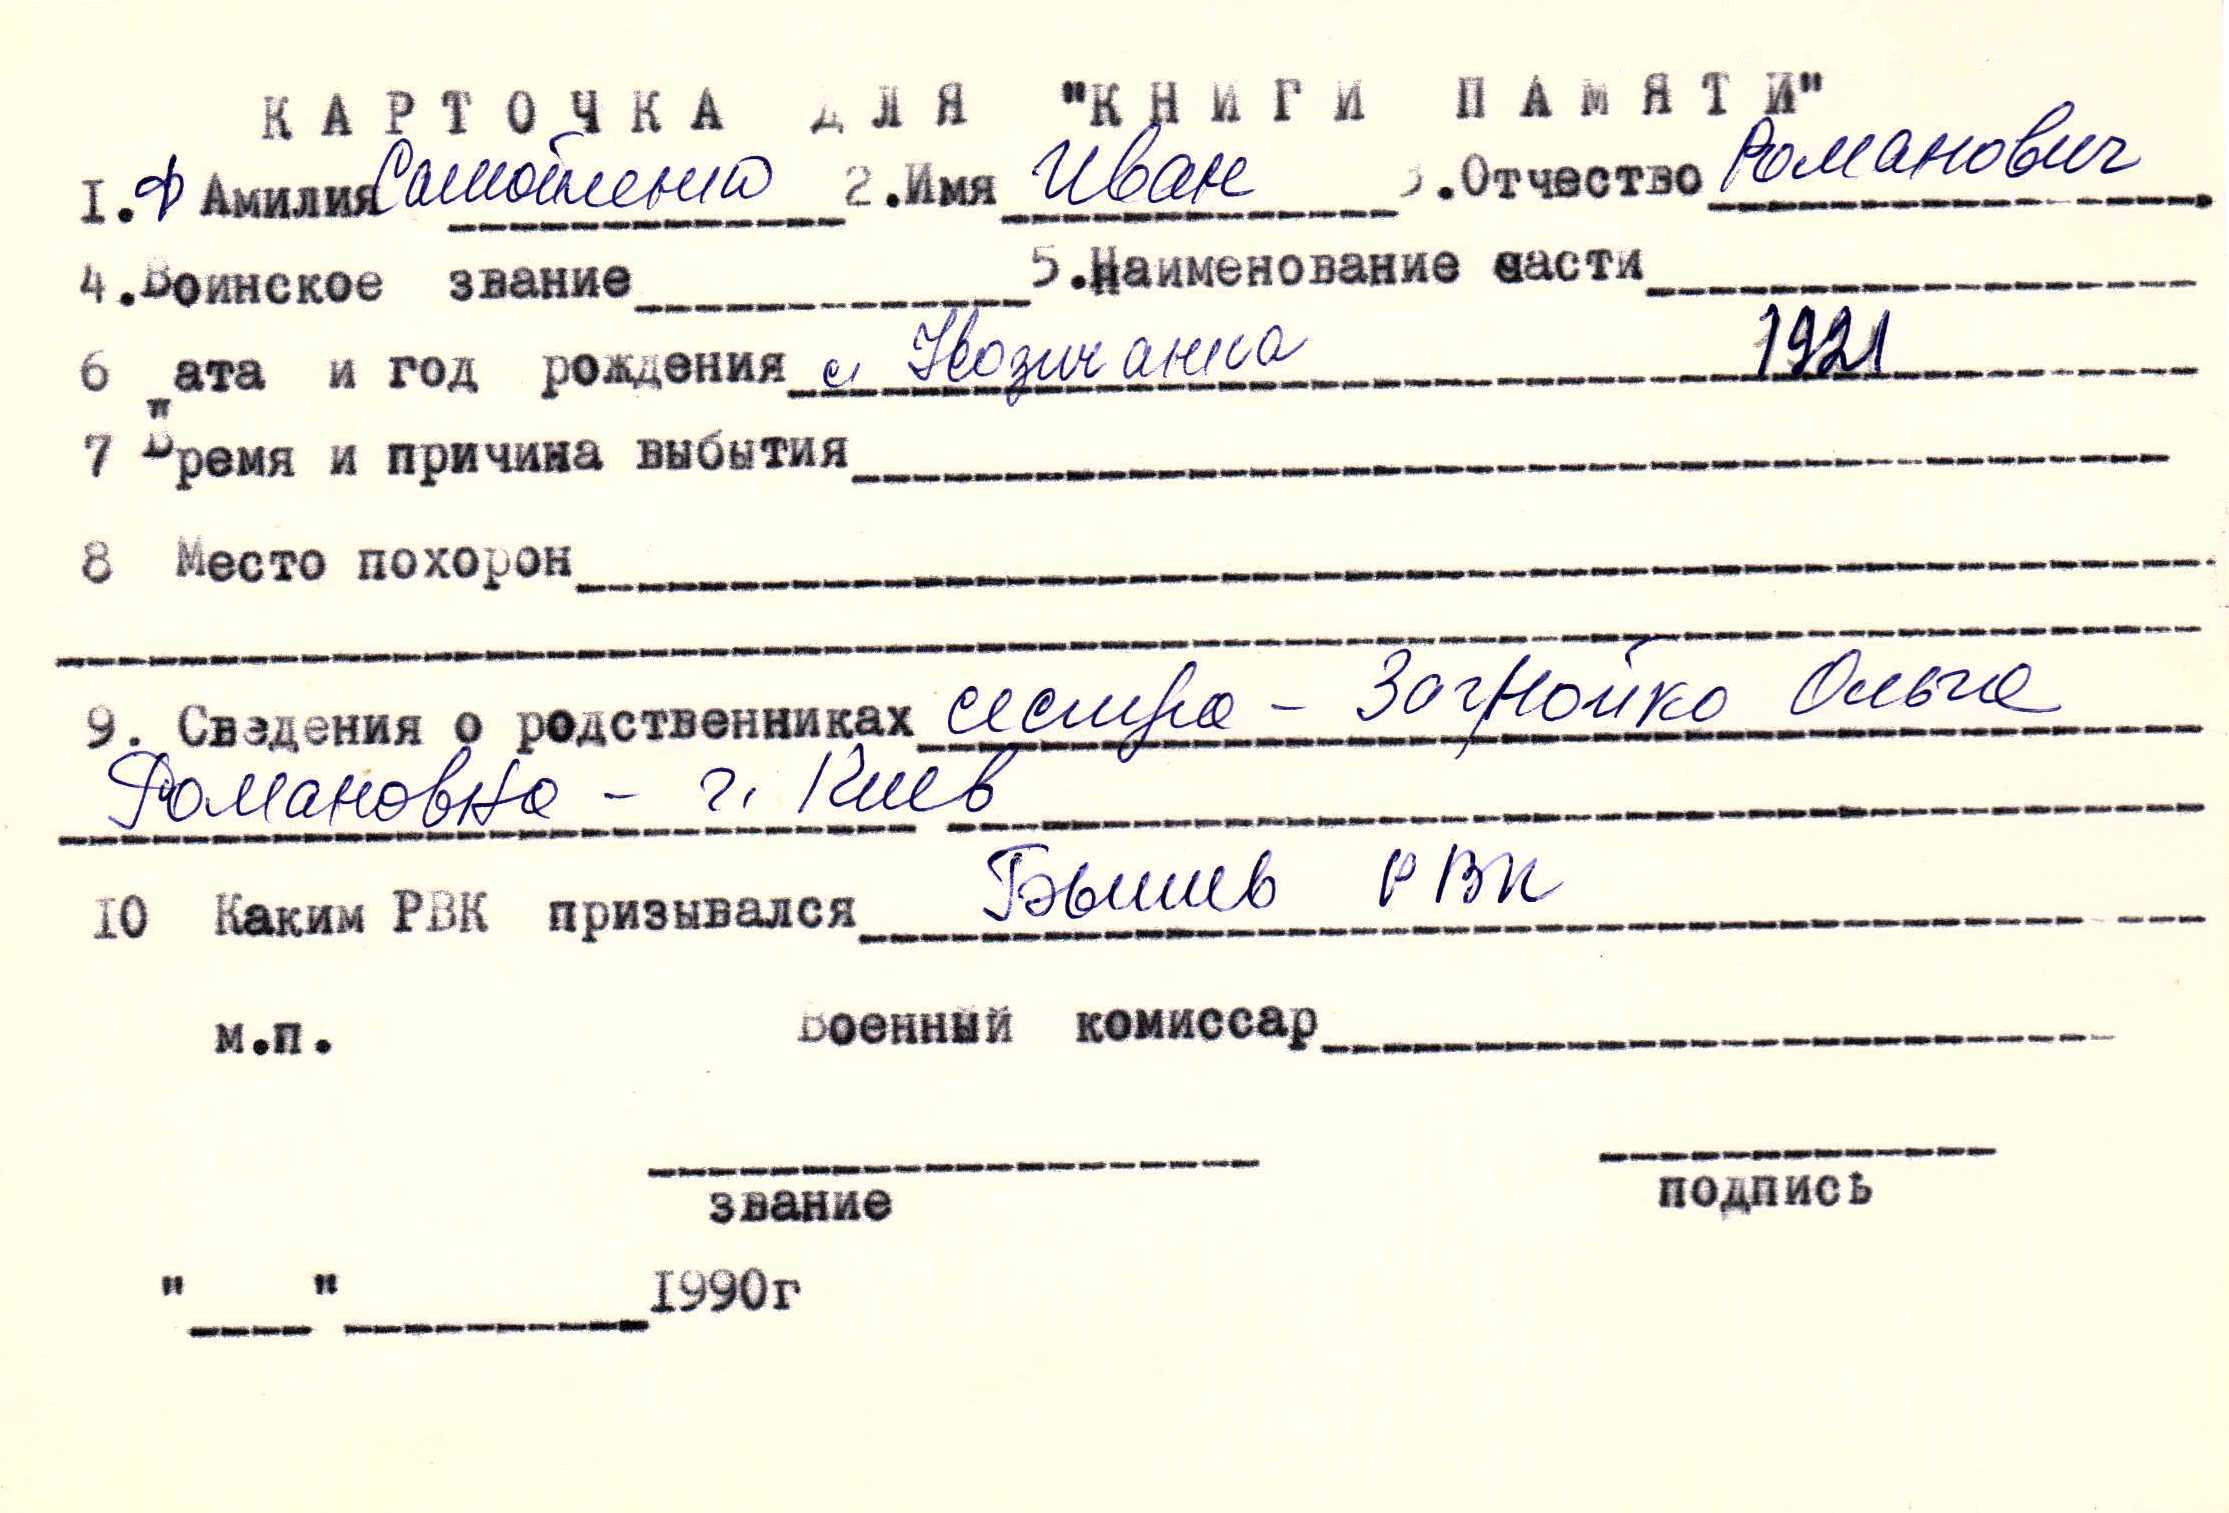 КАРТОЧКА ДЛЯ "КНИГИ ПАМЯТИ"
I.ФАмилия Самойленко 2.Имя Иван 3.Отчество Романович
4.Воинское звание 5.Наименование части
6 ата и год рождения с 1921
7 Время и причина выбытия
8 Место похорон
9. Сведения о родственниках сестра - Загнойко Ольга
Романовна - г. Киев
I0 Каким РВК призывался Бышев РВК
м.п. Военный комиссар
звание подпись
" " I990г